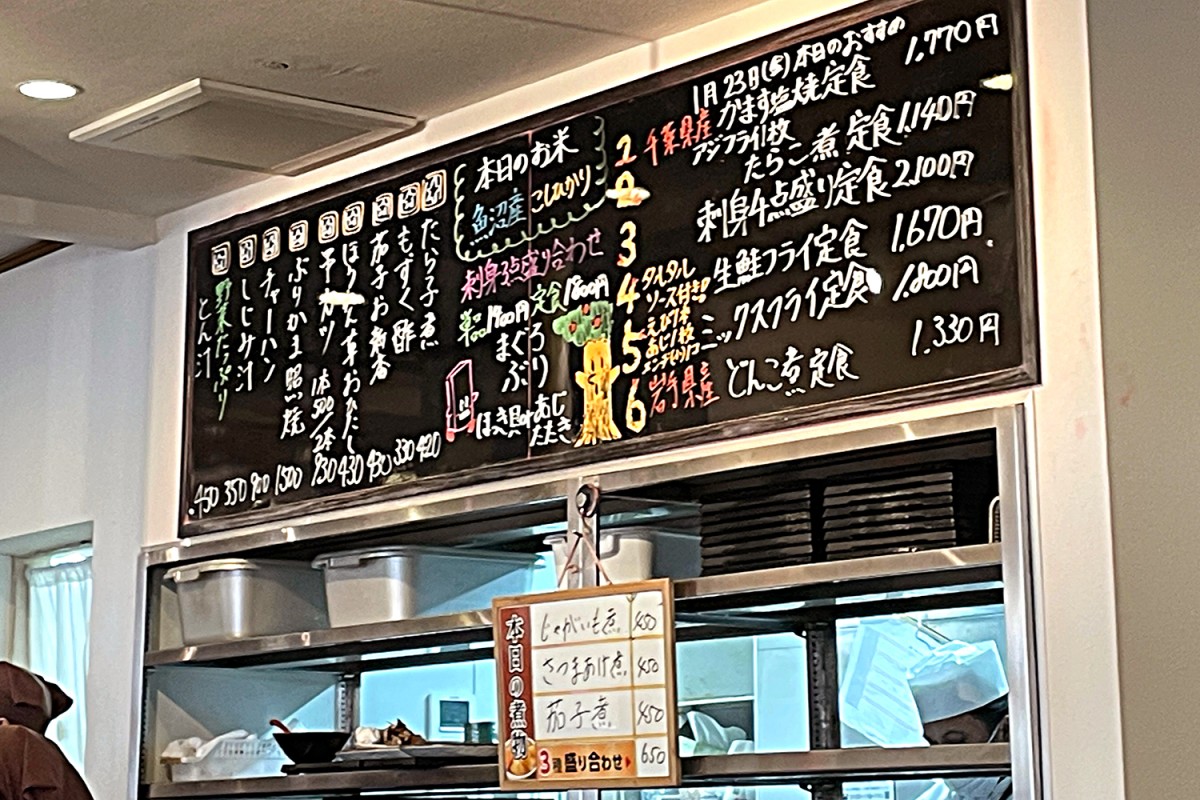 1月23日(金)本日のおすすめ
1 千葉県産 かます塩焼定食 1,770円
アジフライ1枚
2 たらこ煮定食 1,140円
3 刺身4点盛り定食 2,100円
4 生鮭フライ定食 1,670円
タルタルソース付き
5 ミックスフライ定食 1,800円
えび1本
あじ1枚
6 岩手県産 どんこ煮定食 1,330円
本日のお米
魚沼産 こしひかり
刺身3点盛り合わせ
単品1400円 定食1800円
まぐろ
ぶり
ほっき貝 or あじたたき
たら子煮 420
もずく酢 330
茄子お新香 430
ほうれん草おひたし 430
串カツ 1本500/2本 930
ぶりかま照焼 1500
チャーハン 900
しじみ汁 350
野菜たっぷり
とん汁 450
本日の煮物
じゃがいも煮 450
さつまあげ煮 450
茄子煮 450
3種盛り合わせ 650